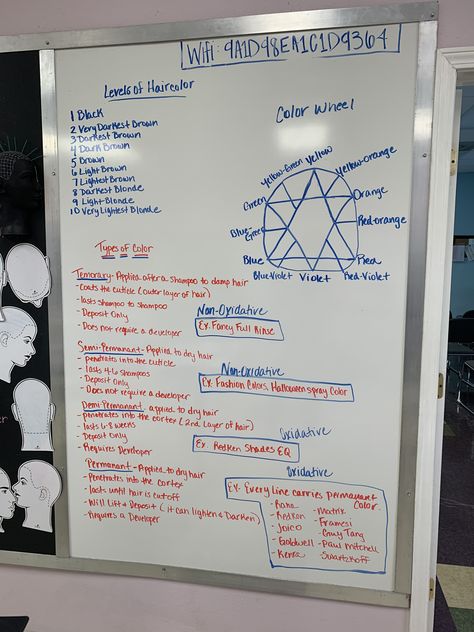 Wifi: 9A1D98EA1C1D9364
Levels of Haircolor
1 Black
2 Very Darkest Brown
3 Darkest Brown
4 Dark Brown
5 Brown
6 Light Brown
7 Lightest Brown
8 Darkest Blonde
9 Light Blonde
10 Very Lightest Blonde
Color Wheel
Yellow
Yellow-Green
Yellow-orange
Green
Orange
Blue-Green
Red-orange
Blue
Red
Blue-Violet
Violet
Red-Violet
Types of Color
Temorary- Applied after a shampoo to damp hair
- Coats the cuticle (outer layer of hair)
- lasts shampoo to shampoo
- Deposit Only
- Does not require a developer
Non-Oxidative
Ex. Fancy Full Rinse
Semi-Permanant- Applied to dry hair
- penetrates into the cuticle
- lasts 4-6 shampoos
- Deposit Only
- Does not require a developer
Non-Oxidative
Ex. Fashion Colors, Halloween spray Color
Demi-Permanant- applied to dry hair
- penetrates into the cortex (2nd layer of hair)
- lasts 6-8 weeks
- Deposit Only
- Requires Developer
Oxidative
Ex. Redken Shades EQ
Permanant- Applied to dry hair
- Penetrates into the cortex
- lasts until hair is cutoff
- Will Lift & Deposit (it can lighten & Darken)
- Requires a Developer
Oxidative
EX. Every Line carries permanant Color.
- Redken
- Joico
- Goldwell
- Kenra
- Matrix
- Framesi
- Guy Tang
- Paul Mitchell
- Swartzkoff